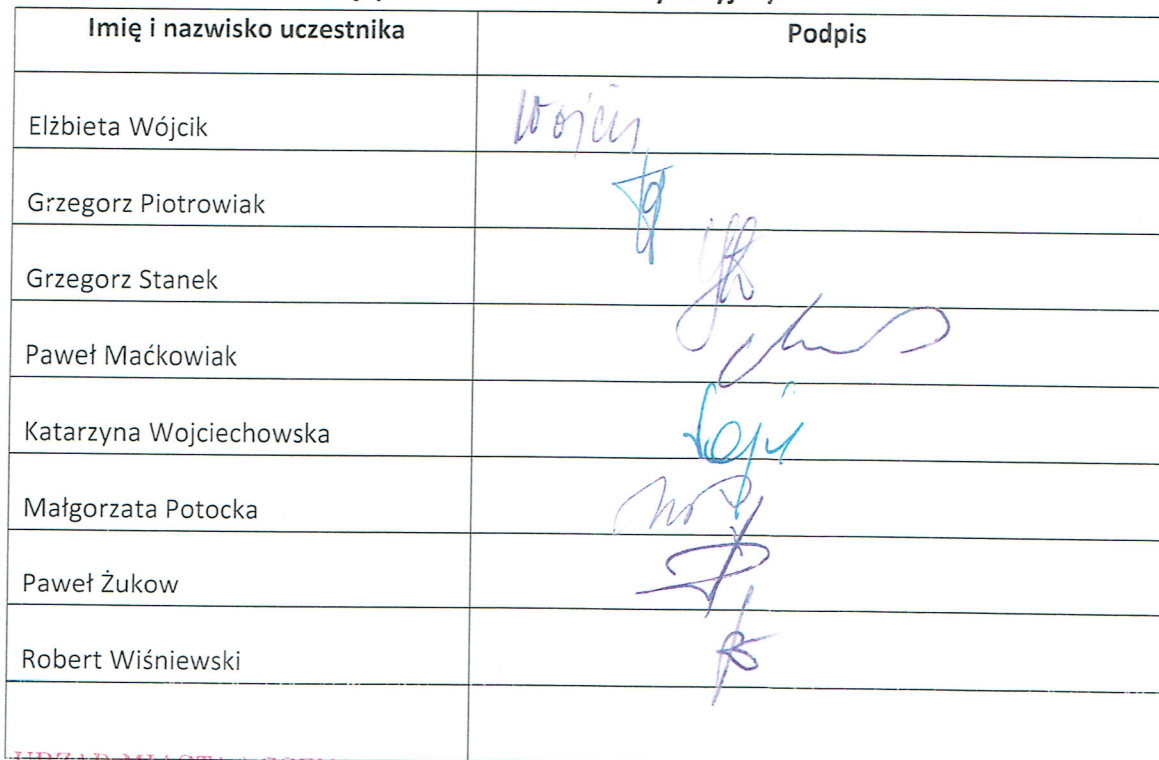 Imię i nazwisko uczestnika Podpis
Elżbieta Wójcik Wójcik
Grzegorz Piotrowiak
Grzegorz Stanek
Paweł Maćkowiak
Katarzyna Wojciechowska
Małgorzata Potocka
Paweł Żukow
Robert Wiśniewski
URZĄD MIASTA